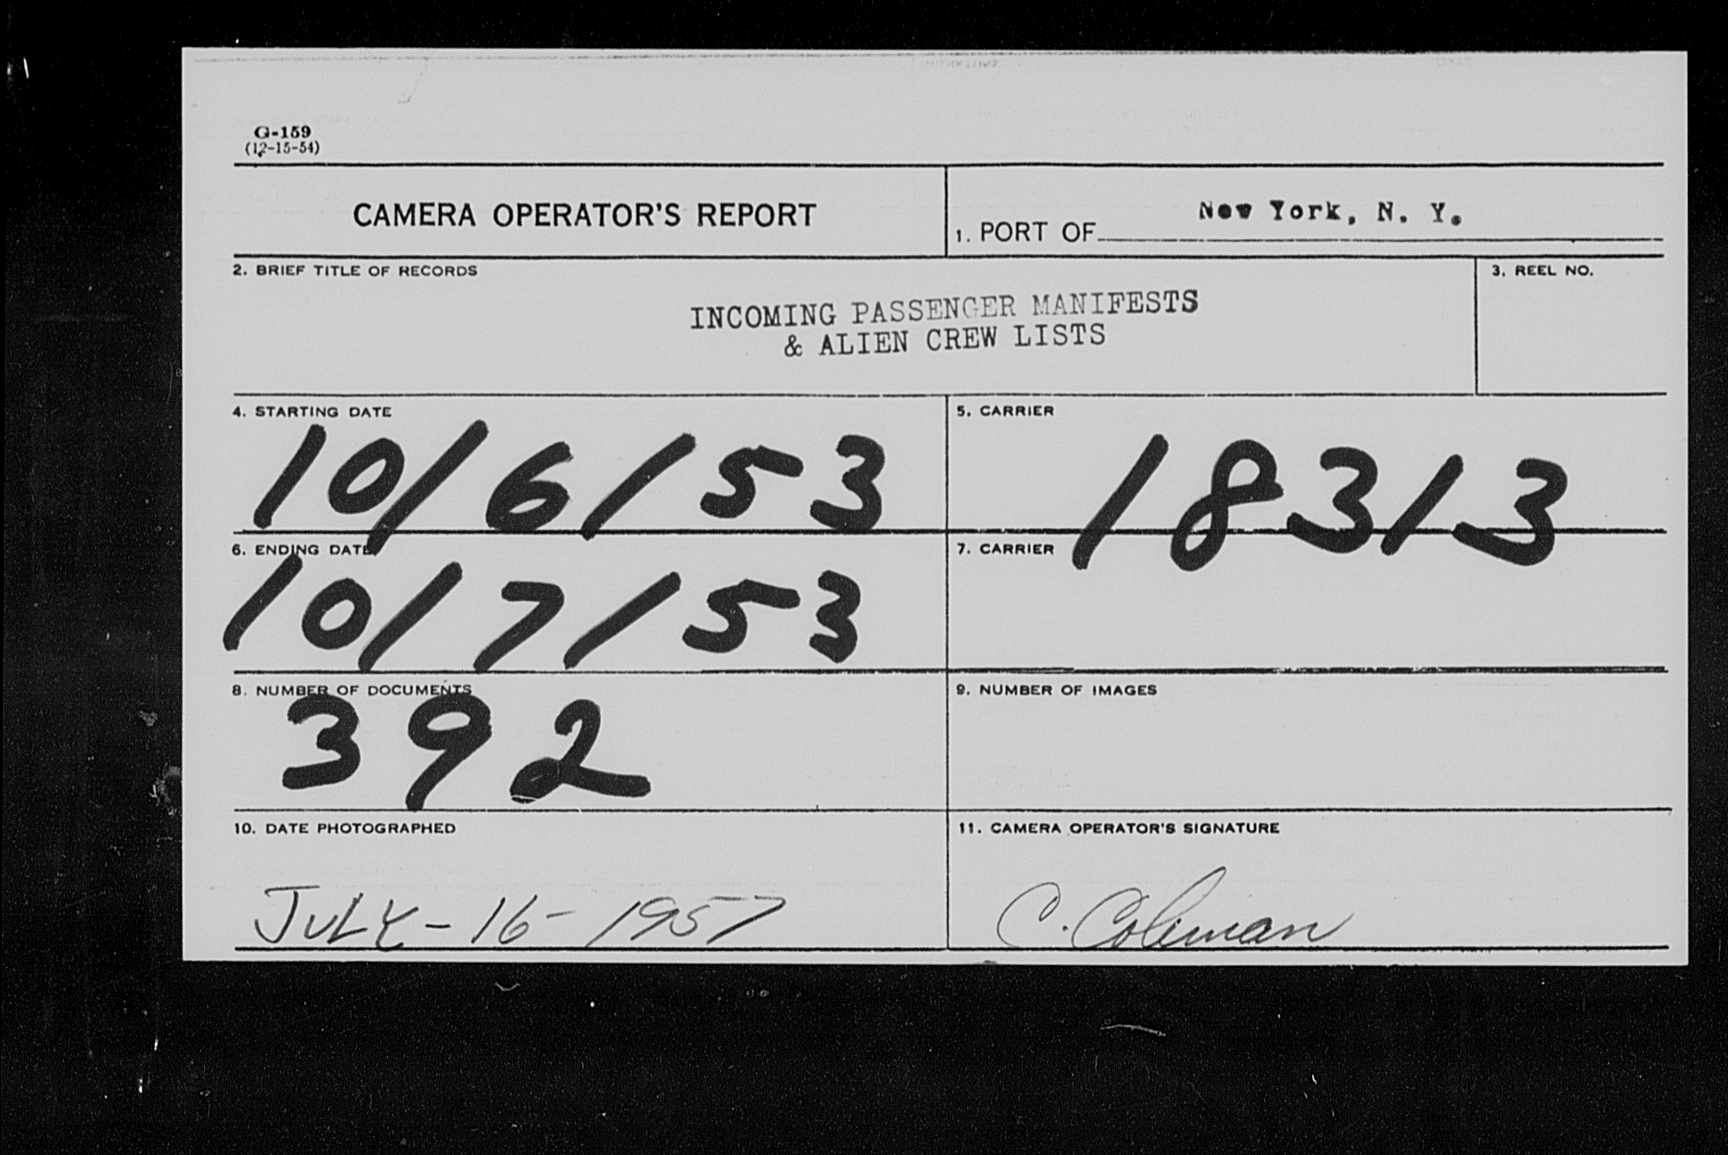 G-159
(12-15-54)
CAMERA OPERATOR'S REPORT
1. PORT OF New York, N. Y.
2. BRIEF TITLE OF RECORDS
INCOMING PASSENGER MANIFESTS
& ALIEN CREW LISTS
3. REEL NO.
4. STARTING DATE
10/6/53
5. CARRIER
18313
6. ENDING DATE
10/7/53
7. CARRIER
8. NUMBER OF DOCUMENTS
392
9. NUMBER OF IMAGES
10. DATE PHOTOGRAPHED
JULY-16-1957
11. CAMERA OPERATOR'S SIGNATURE
C. Coleman